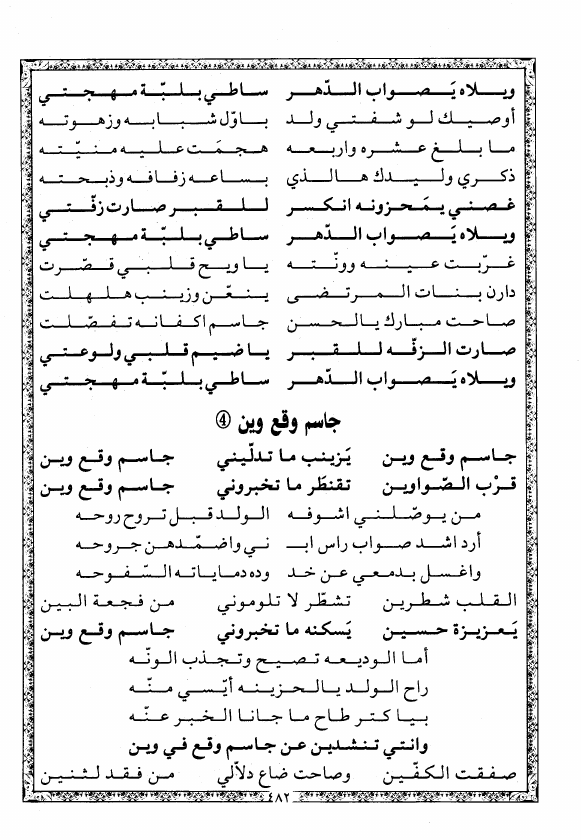 ويلاه يَصواب الدّهر ساطي بلبّة مهجتي
أوصيك لو شفتي ولد باوّل شبابه وزهوته
ما بلغ عشره واربعه هجمَت عليه منيّته
ذكري وليدك هالذي بساعه زفافه وذبحته
غصني يمَحزونه انكسر للقبر صارت زفّتي
ويلاه يَصواب الدّهر ساطي بلبّة مهجتي
غرّبت عينه وونّته ياويح قلبي قصّرت
دارن بنات المرتضى ينعَن وزينب هلهلت
صاحت مبارك يالحسن جاسم اكفانه تفصّلت
صارت الزفّه للقبر ياضيم قلبي ولوعتي
ويلاه يَصواب الدّهر ساطي بلبّة مهجتي
جاسم وقع وين ④
جاسم وقع وين يَزينب ما تدلّيني جاسم وقع وين
قرْب الصّواوين تقنطَر ما تخبروني جاسم وقع وين
من يوصّلني اشوفه الولد قبل تروح روحه
أرد اشد صواب راس ابـ ني واضمّدهن جروحه
واغسل بدمعي عن خد وده دماياته السّفوحه
القلب شطرين تشطّر لا تلوموني من فجعة البين
يَعزيزة حسين يَسكنه ما تخبروني جاسم وقع وين
أما الوديعه تصيح وتجذب الونّه
راح الولد يالحزينه أيّسي منّه
بيا كتر طاح ما جانا الخبر عنّه
وانتي تنشدين عن جاسم وقع في وين
صفقت الكفّين وصاحت ضاع دلاّلي من فقد لثنين
٤٨٢